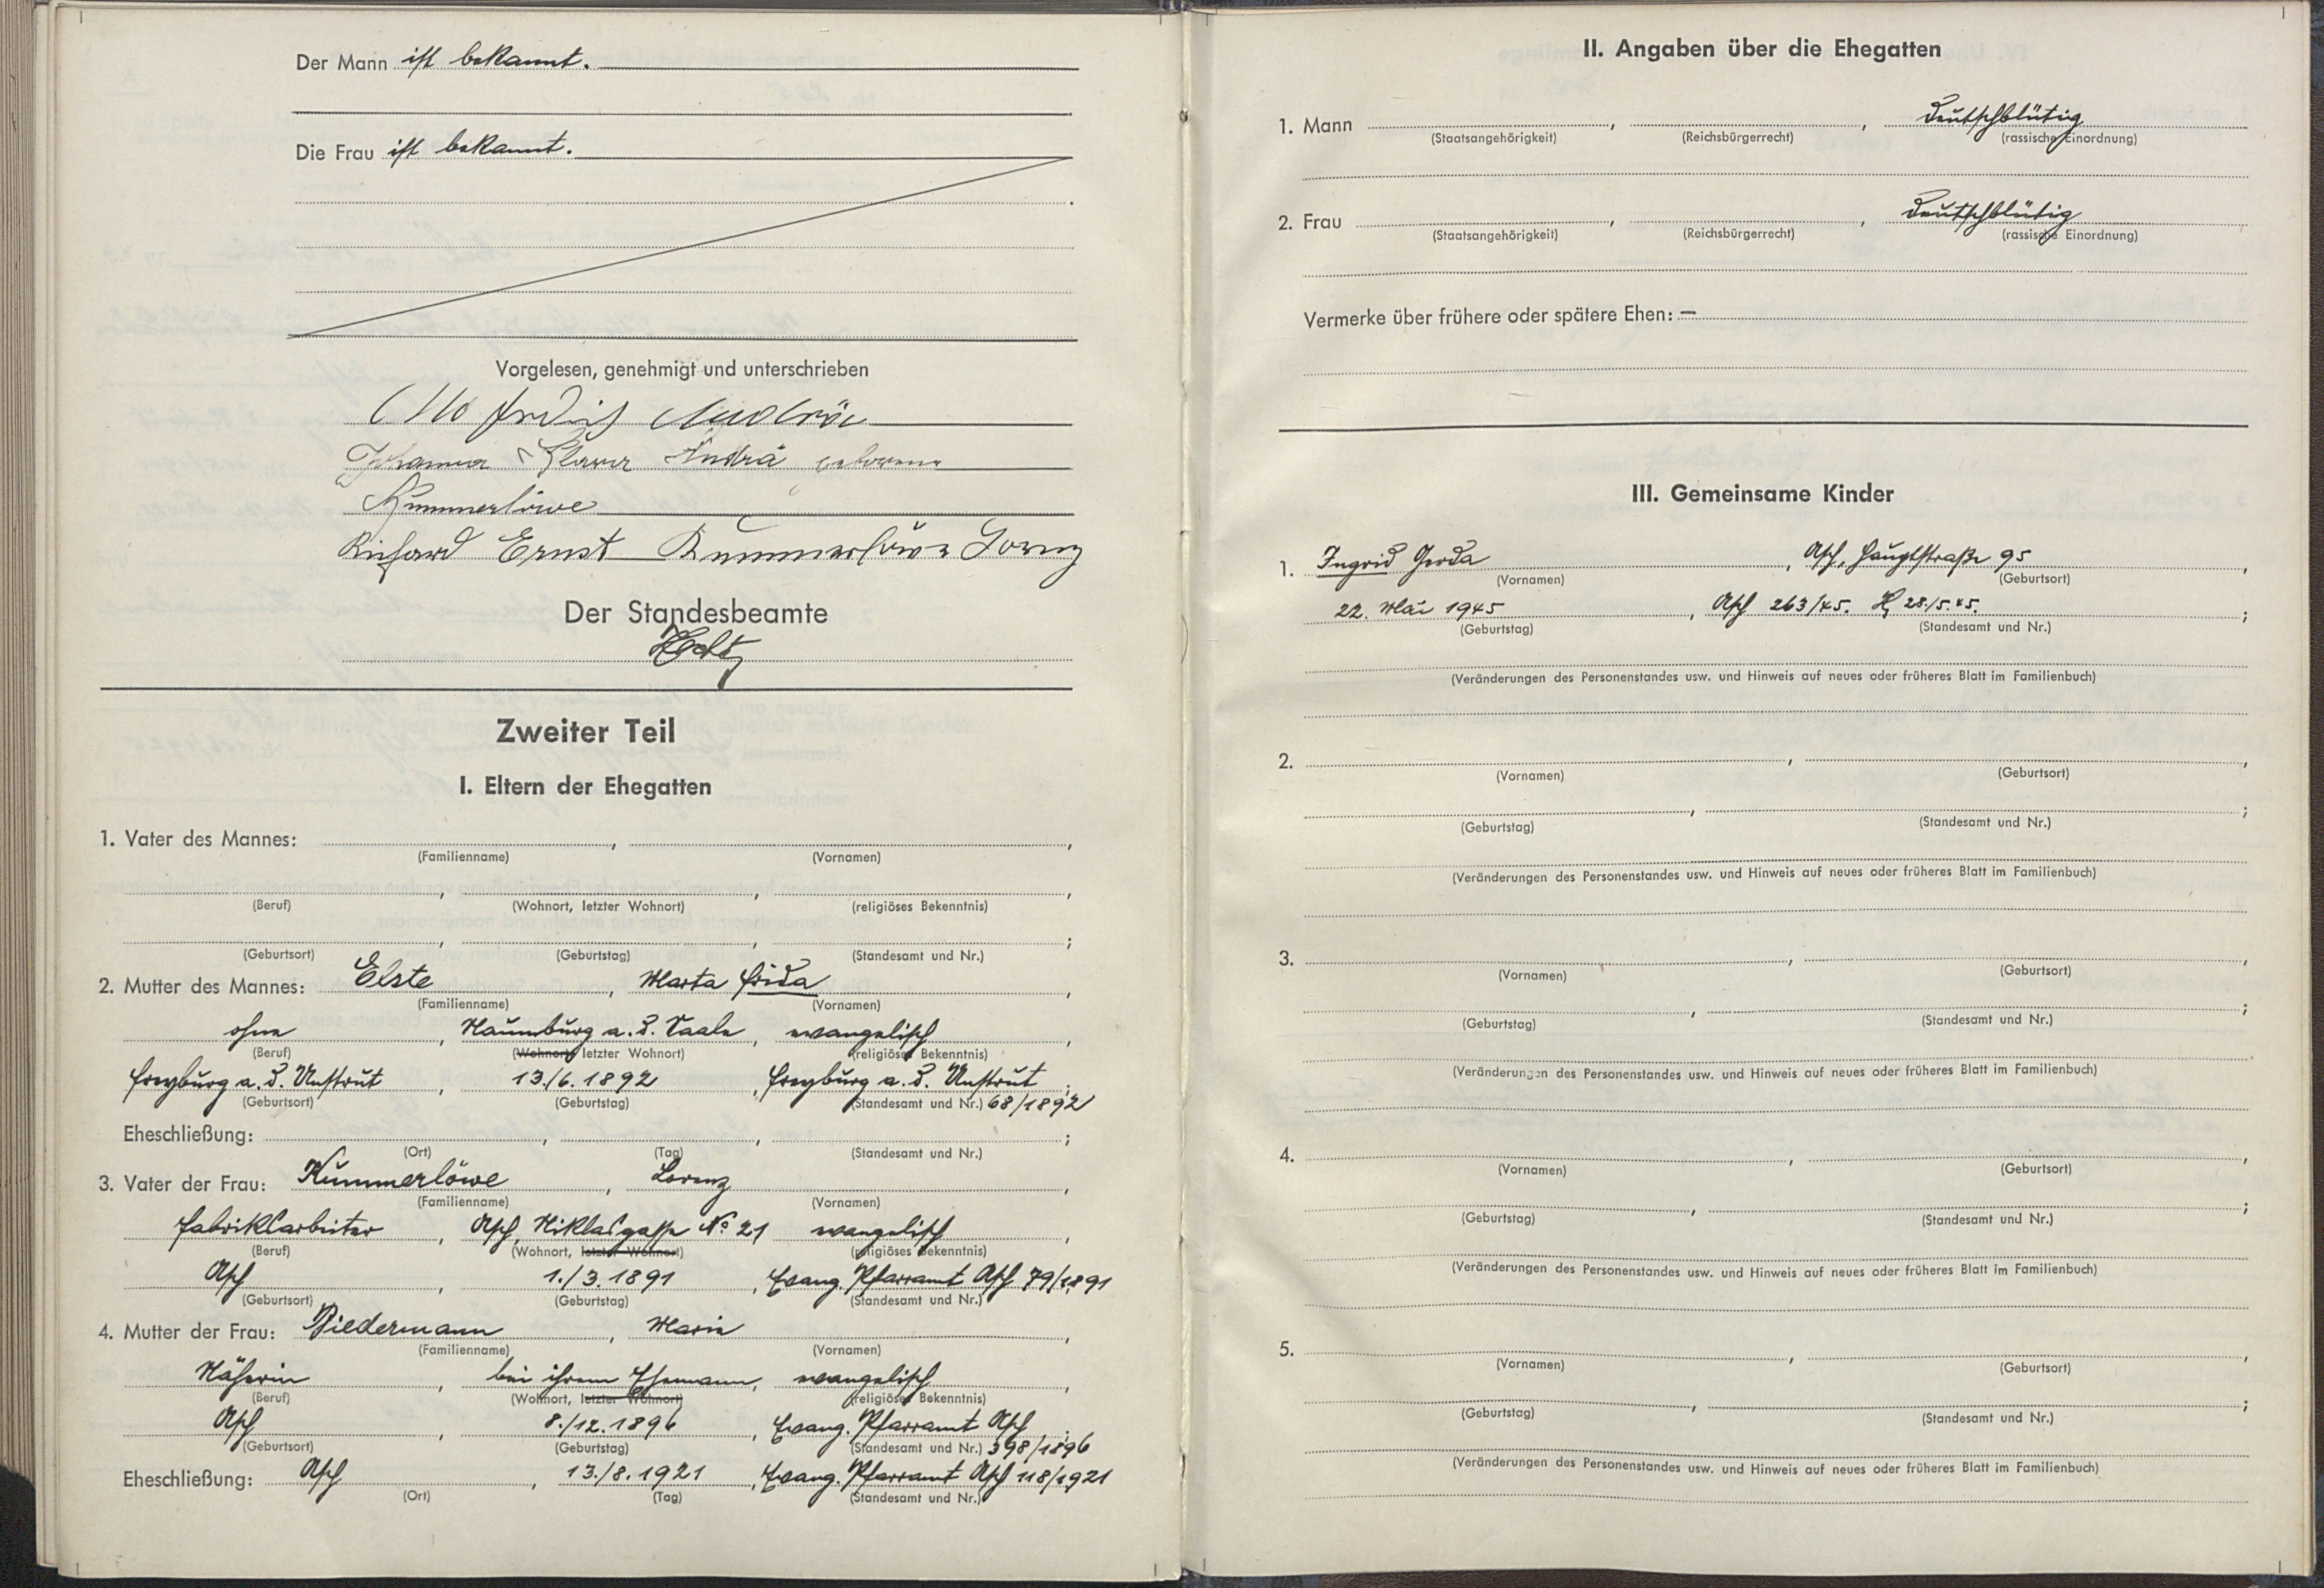 Der Mann ist bekannt.
Die Frau ist bekannt.
Vorgelesen, genehmigt und unterschrieben
Otto
Johanna Andrä geborene
Kummerlöwe
Richard Ernst Kummerlöwe Lorenz
Der Standesbeamte
Zweiter Teil
I. Eltern der Ehegatten
1. Vater des Mannes: , ,
(Familienname) (Vornamen)
, , ,
(Beruf) (Wohnort, letzter Wohnort) (religiöses Bekenntnis)
, , ;
(Geburtsort) (Geburtstag) (Standesamt und Nr.)
2. Mutter des Mannes: Elste , Marta Frida ,
(Familienname) (Vornamen)
ohne , Naumburg a. d. Saale , evangelisch ,
(Beruf) (Wohnort, letzter Wohnort) (religiöses Bekenntnis)
Freyburg a. d. Unstrut , 13./6. 1892 , Freyburg a. d. Unstrut ;
(Geburtsort) (Geburtstag) (Standesamt und Nr.) 68/1892
Eheschließung: , , ;
(Ort) (Tag) (Standesamt und Nr.)
3. Vater der Frau: Kummerlöwe , Lorenz ,
(Familienname) (Vornamen)
Fabriksarbeiter , Asch, Niklasgasse No 21 evangelisch ,
(Beruf) (Wohnort, letzter Wohnort) (religiöses Bekenntnis)
Asch , 1./3. 1891 , Evang. Pfarramt Asch 79/1891
(Geburtsort) (Geburtstag) (Standesamt und Nr.)
4. Mutter der Frau: Biedermann , Marie ,
(Familienname) (Vornamen)
Näherin , bei ihrem Ehemann, evangelisch ,
(Beruf) (Wohnort, letzter Wohnort) (religiöses Bekenntnis)
Asch , 8./12. 1896 , Evang. Pfarramt Asch ;
(Geburtsort) (Geburtstag) (Standesamt und Nr.) 398/1896
Eheschließung: Asch , 13./8. 1921 , Evang. Pfarramt Asch 118/1921
(Ort) (Tag) (Standesamt und Nr.)
II. Angaben über die Ehegatten
1. Mann , , deutschblütig
(Staatsangehörigkeit) (Reichsbürgerrecht) (rassische Einordnung)
2. Frau , , deutschblütig
(Staatsangehörigkeit) (Reichsbürgerrecht) (rassische Einordnung)
Vermerke über frühere oder spätere Ehen: —
III. Gemeinsame Kinder
1. Ingrid Gerda , Asch, Hauptstraße 95 ,
(Vornamen) (Geburtsort)
22. Mai 1945 , Asch 263/45. 28./5. 45. ;
(Geburtstag) (Standesamt und Nr.)
(Veränderungen des Personenstandes usw. und Hinweis auf neues oder früheres Blatt im Familienbuch)
2. , ,
(Vornamen) (Geburtsort)
, ;
(Geburtstag) (Standesamt und Nr.)
(Veränderungen des Personenstandes usw. und Hinweis auf neues oder früheres Blatt im Familienbuch)
3. , ,
(Vornamen) (Geburtsort)
, ;
(Geburtstag) (Standesamt und Nr.)
(Veränderungen des Personenstandes usw. und Hinweis auf neues oder früheres Blatt im Familienbuch)
4. , ,
(Vornamen) (Geburtsort)
, ;
(Geburtstag) (Standesamt und Nr.)
(Veränderungen des Personenstandes usw. und Hinweis auf neues oder früheres Blatt im Familienbuch)
5. , ,
(Vornamen) (Geburtsort)
, ;
(Geburtstag) (Standesamt und Nr.)
(Veränderungen des Personenstandes usw. und Hinweis auf neues oder früheres Blatt im Familienbuch)